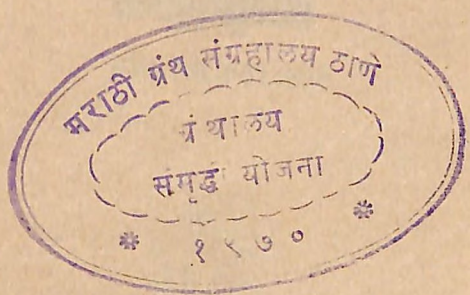 मराठी ग्रंथ संग्रहालय ठाणे
ग्रंथालय
संमृद्ध योजना
* १९७० *